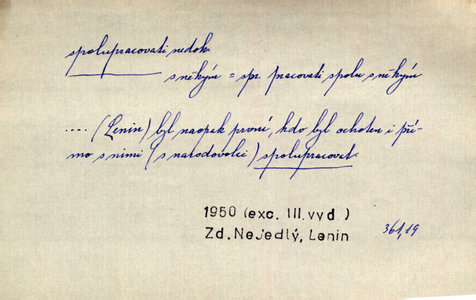 spolupracovati nedok.
s někým = spr. pracovati spolu s někým
.... (Lenin) byl naopak první, kdo byl ochoten i pří-
mo s nimi (s narodovolci) spolupracovat.
1950 (exc. III. vyd )
Zd. Nejedlý, Lenin 361,19